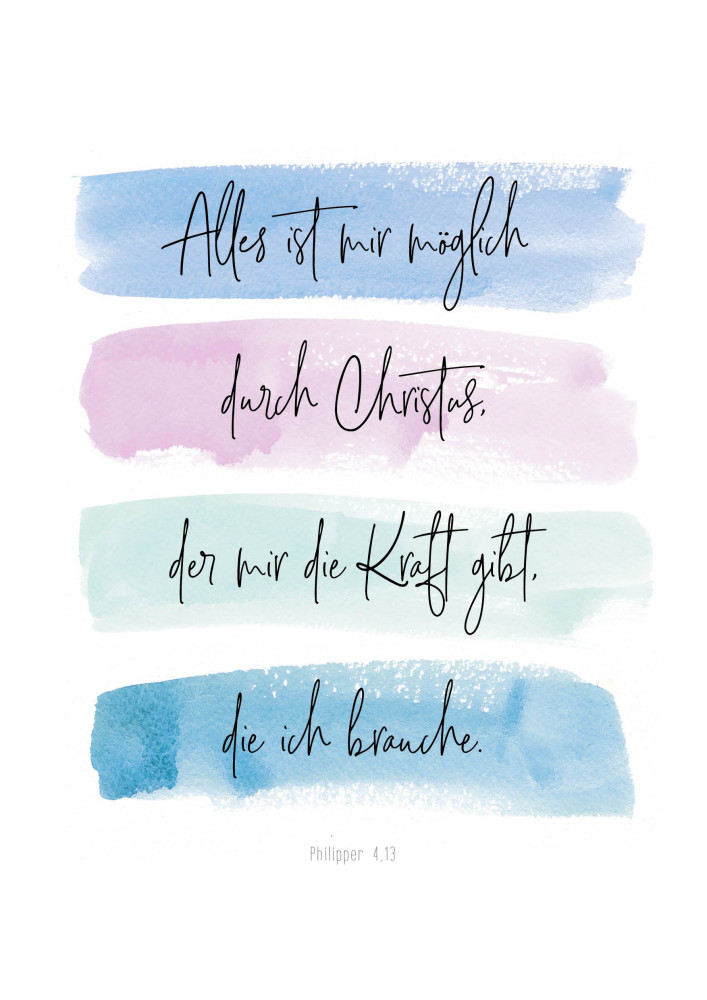 Alles ist mir möglich
durch Christus,
der mir die Kraft gibt,
die ich brauche.
Philipper 4,13